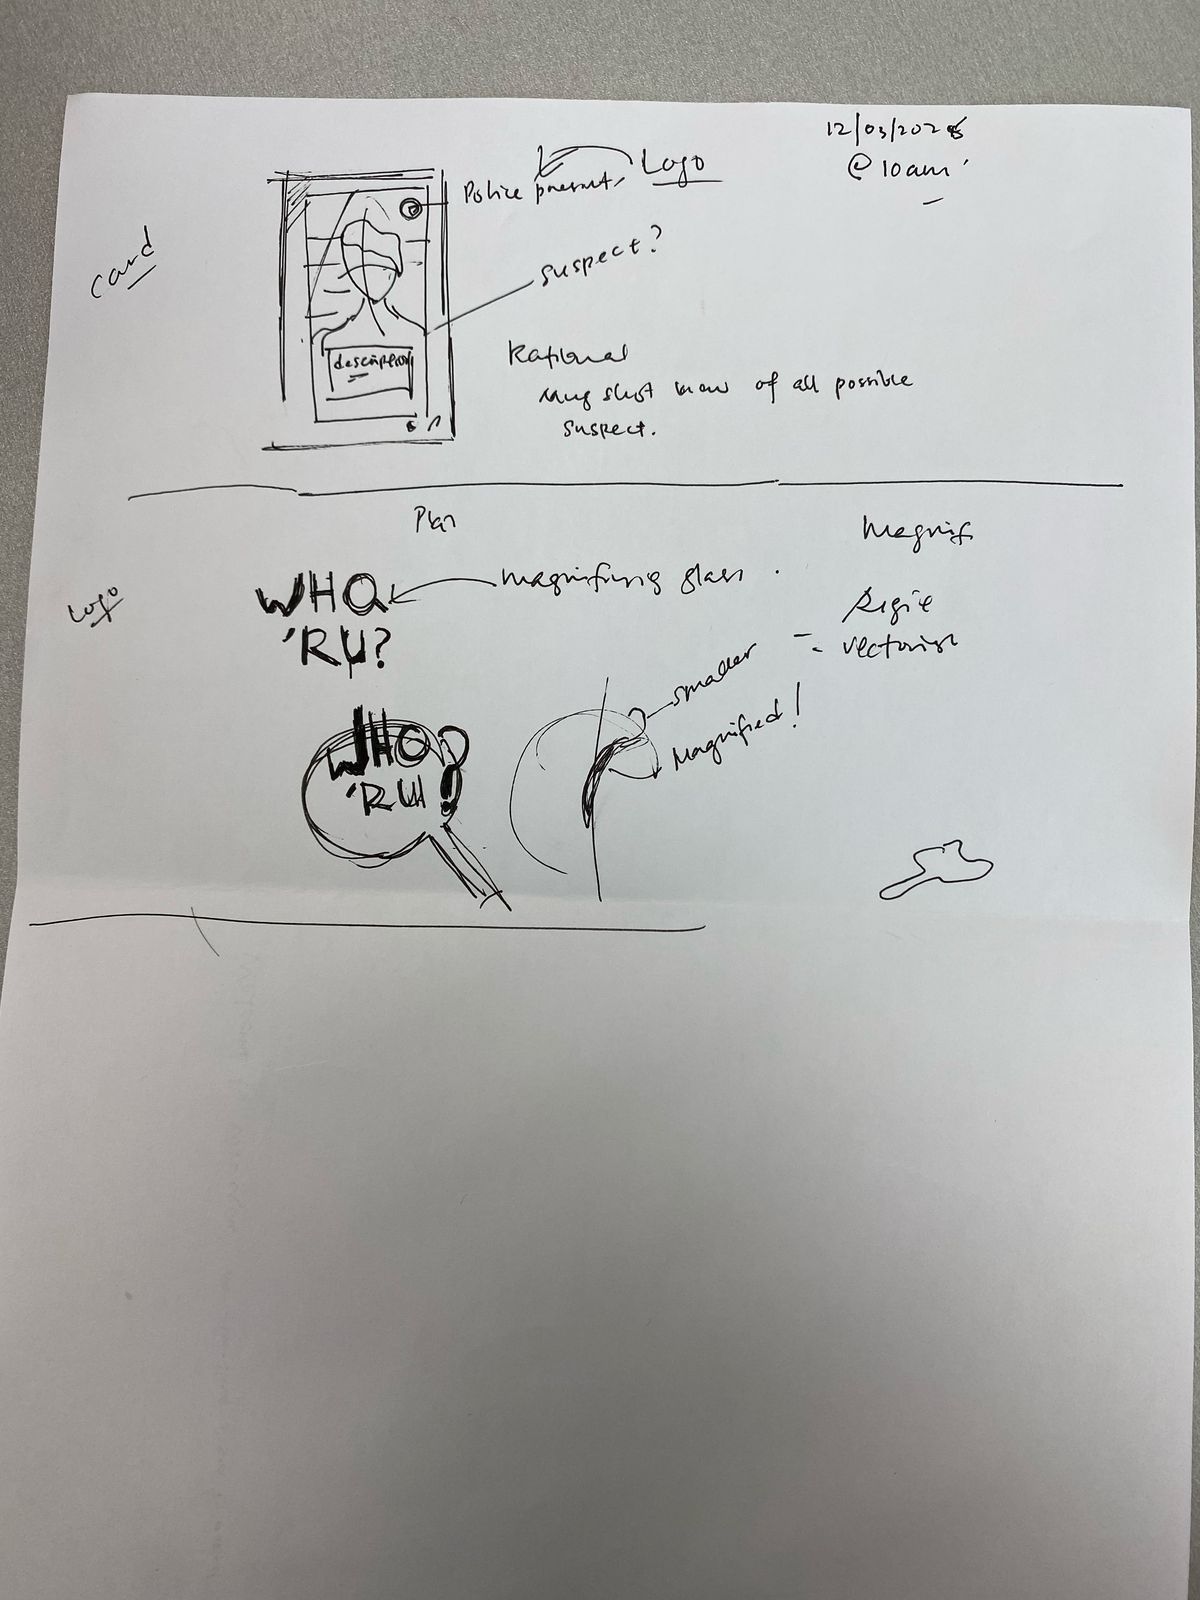 12/03/2026
@ 10am
Logo
Police
card
suspect?
description
Rational
mug shot of all possible
suspect.
Plan
Magnif
Logo
WHO
'RU?
magnifying glass
vectorise
smaller
Magnified!
WHO?
'RU!